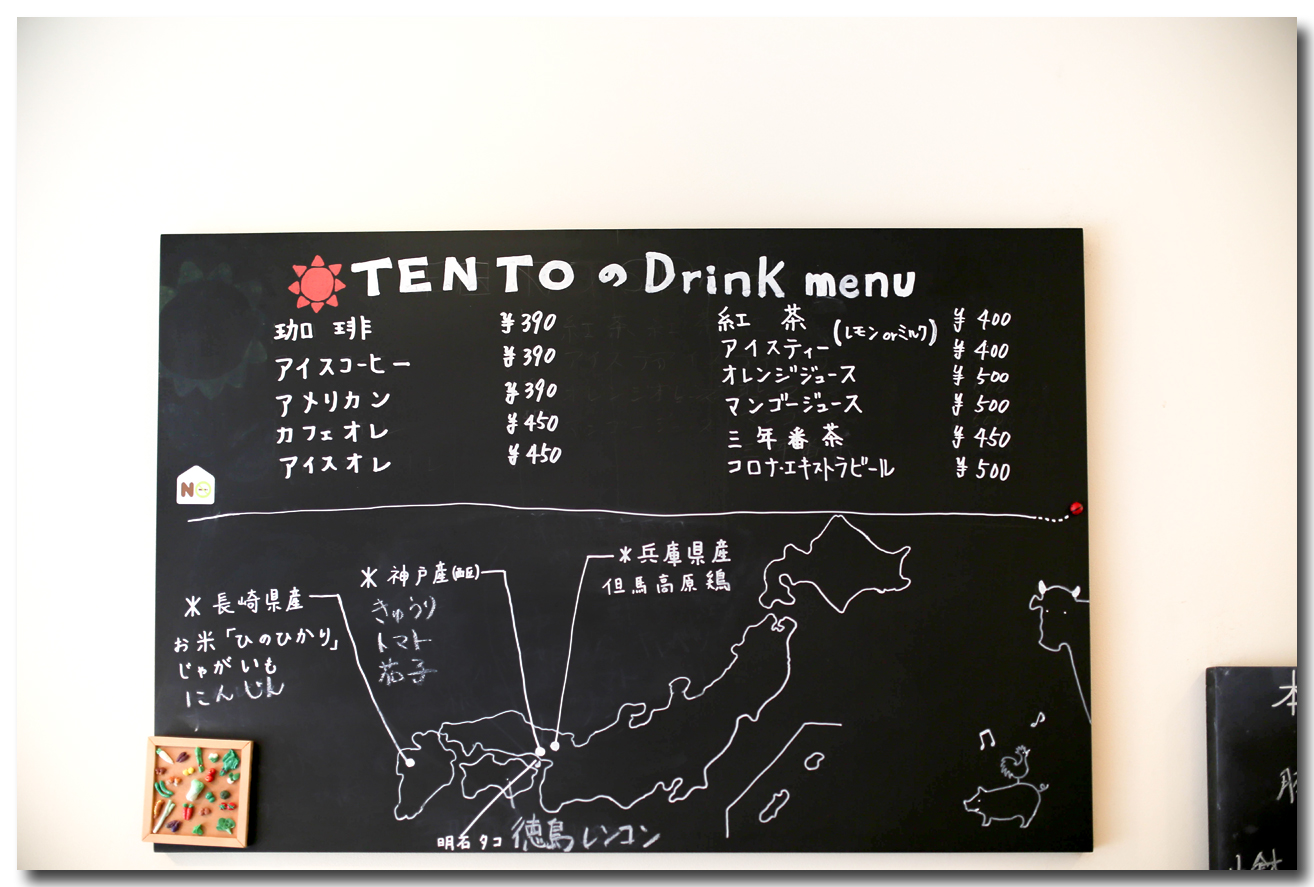 TENTOのDrink menu
珈琲 ¥390
アイスコーヒー ¥390
アメリカン ¥390
カフェオレ ¥450
アイスオレ ¥450
紅茶 (レモンorミルク) ¥400
アイスティー ¥400
オレンジジュース ¥500
マンゴージュース ¥500
三年番茶 ¥450
コロナ・エキストラビール ¥500
NO
*長崎県産
お米「ひのひかり」
じゃがいも
にんじん
*神戸産(西区)
きゅうり
トマト
茄子
*兵庫県産
但馬高原鶏
明石タコ
徳島レンコン
本
豚